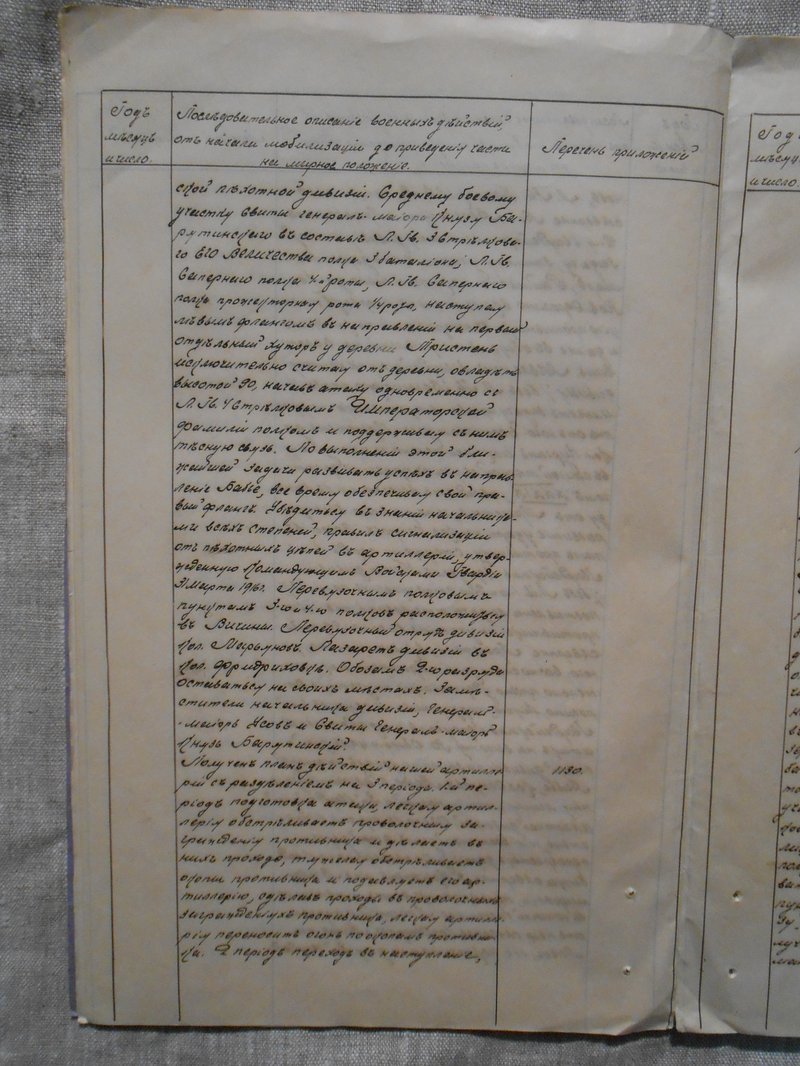 Годъ
мѣсяцъ
и число.
Послѣдовательное описаніе военныхъ дѣйствій,
отъ начала мобилизаціи до приведенія части
на мирное положеніе.
Перечень приложеній
ской пѣхотной дивизіи. Среднему боевому
участку свиты генералъ-маіора Князю Ба-
рятинскаго въ составѣ Л. Гв. 3 Стрѣлково-
го ЕГО Величества полка 3 баталіона, Л. Гв.
Сапернаго полка 4-й роты, Л. Гв. Сапернаго
полка прожекторная рота ¼ роты, наступая
лѣвымъ флангомъ въ направленіи на первый
отдѣльный хуторъ у деревни Тристень
исключительно считая отъ деревни, овладѣть
высотой 90, начавъ атаку одновременно съ
Л. Гв. 4 Стрѣлковымъ Императорской
фамиліи полкомъ и поддерживая съ нимъ
тѣсную связь. По выполненіи этой бли-
жайшей задачи развивать успѣхъ въ направ-
леніе Бабье, все время обезпечивая свой пра-
вый флангъ. Убѣдиться въ знаніи начальника-
ми всѣхъ степеней, правилъ сигнализаціи
отъ пѣхотныхъ цѣпей въ артиллеріи, утвер-
жденную Командующимъ Войсками Гвардіи
31 Марта 1916 г. Перевязочнымъ полковымъ
пунктамъ 3-го и 4-го полковъ расположиться
въ Вичины. Перевязочный отрядъ дивизіи
кол. Марьяновъ. Лазаретъ дивизіи въ
кол. Фридриховка. Обозамъ 2-го разряда
оставаться на своихъ мѣстахъ. Замѣ-
стители начальника дивизіи, Генералъ
-маіоръ Усовъ и Свиты Генералъ-маіоръ
Князь Барятинскій.
Полученъ планъ дѣйствій нашей артилле-
ріи съ раздѣленіемъ на 3 періода. 1-й пе-
ріодъ подготовка атаки, легкая артил-
лерія обстрѣливаетъ проволочныя за-
гражденія противника и дѣлаетъ въ
нихъ проходы, тяжелая обстрѣливаетъ
окопы противника и подавляетъ его ар-
тиллерію, сдѣлавъ проходы въ проволочныхъ
загражденіяхъ противника, легкая артилле-
рія переноситъ огонь по окопамъ противни-
ка. 2 періодъ переходъ въ наступленіе,
1130.
Годъ
мѣсяцъ
и число.